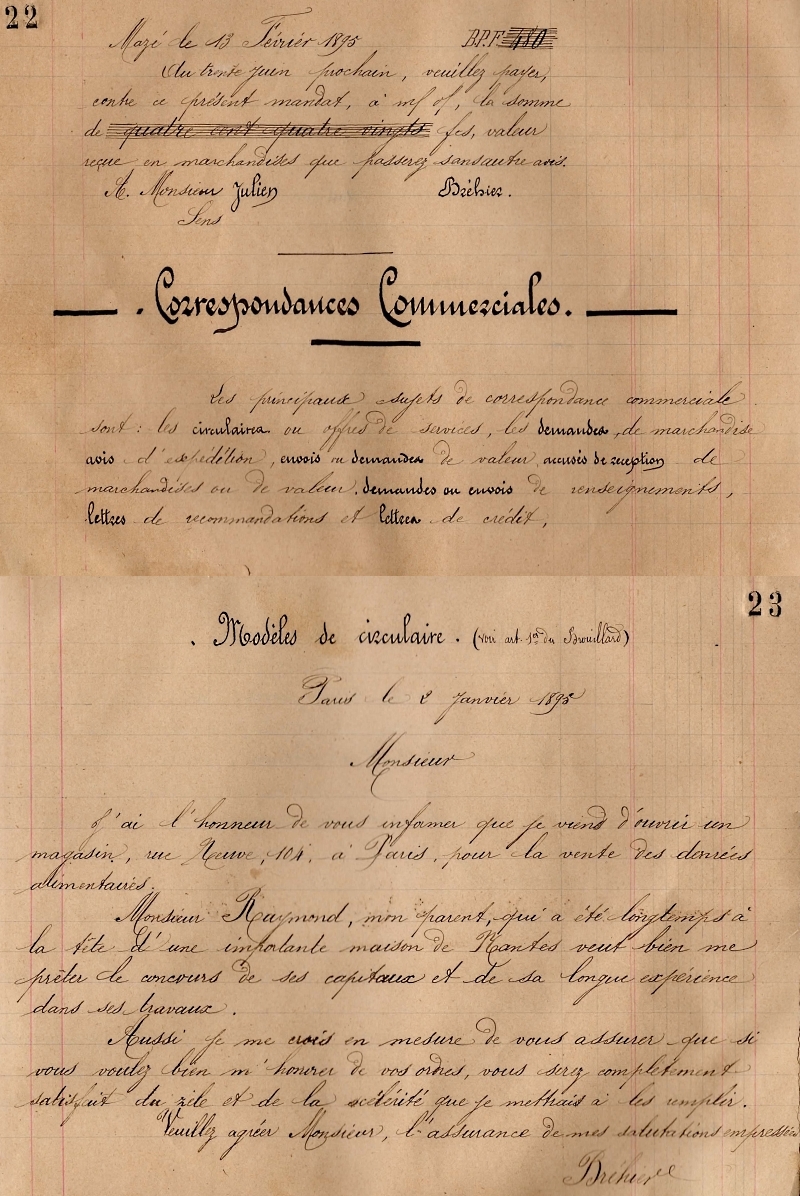 22
Mazé le 13 Février 1895 BPF 480
Au trente Juin prochain, veuillez payer,
contre ce présent mandat, à m/ o/, la somme
de quatre cent quatre vingts fcs, valeur
reçue en marchandises que passerez sans autre avis.
A. Monsieur Julien Bréhier.
Sens
. Correspondances Commerciales.
Les principaux sujets de correspondance commerciale
sont : les circulaires ou offres de services, les demandes de marchandise
avis d'expédition, envois ou demandes de valeur, accusés de réception de
marchandises ou de valeur, demandes ou envois de renseignements,
lettres de recommandations et lettres de crédit,
23
. Modèles de circulaire. (voir art. 1er du Brouillard)
Paris le 2 Janvier 1895
Monsieur
J'ai l'honneur de vous informer que je viens d'ouvrir un
magasin, rue Neuve, 104, à Paris, pour la vente des denrées
alimentaires.
Monsieur Raymond, mon parent, qui a été longtemps à
la tête d'une importante maison de Nantes veut bien me
prêter le concours de ses capitaux et de sa longue expérience
dans ses travaux.
Aussi je me crois en mesure de vous assurer que si
vous voulez bien m'honorer de vos ordres, vous serez complètement
satisfait du zèle et de la scélérité que je mettrais à les remplir.
Veuillez agréer Monsieur, l'assurance de mes salutations empressées
Bréhier